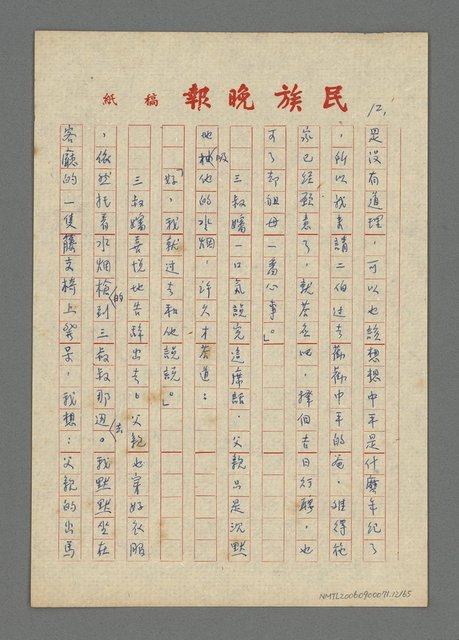 民族晚報 稿紙
12,
是沒有道理，可以也該想想中平是什麼年紀了
，所以我來請二伯过去勸勸中平的爸，难得他
家已經願意了，就答应吧，擇個吉日行聘，也
可了却祖母一番心事。」
三叔嬸一口氣說完這席話，父親只是沉默
地吸他的水烟，許久才答道：
「好，我就过去和他說說。」
三叔嬸喜悅地告辞出去。父親也穿好衣服
，依然托着水烟的到三叔叔那边去。我默默坐在
客廳的一隻籐交椅上發呆，我想：父親的出馬
NMTL20060900071.12/65